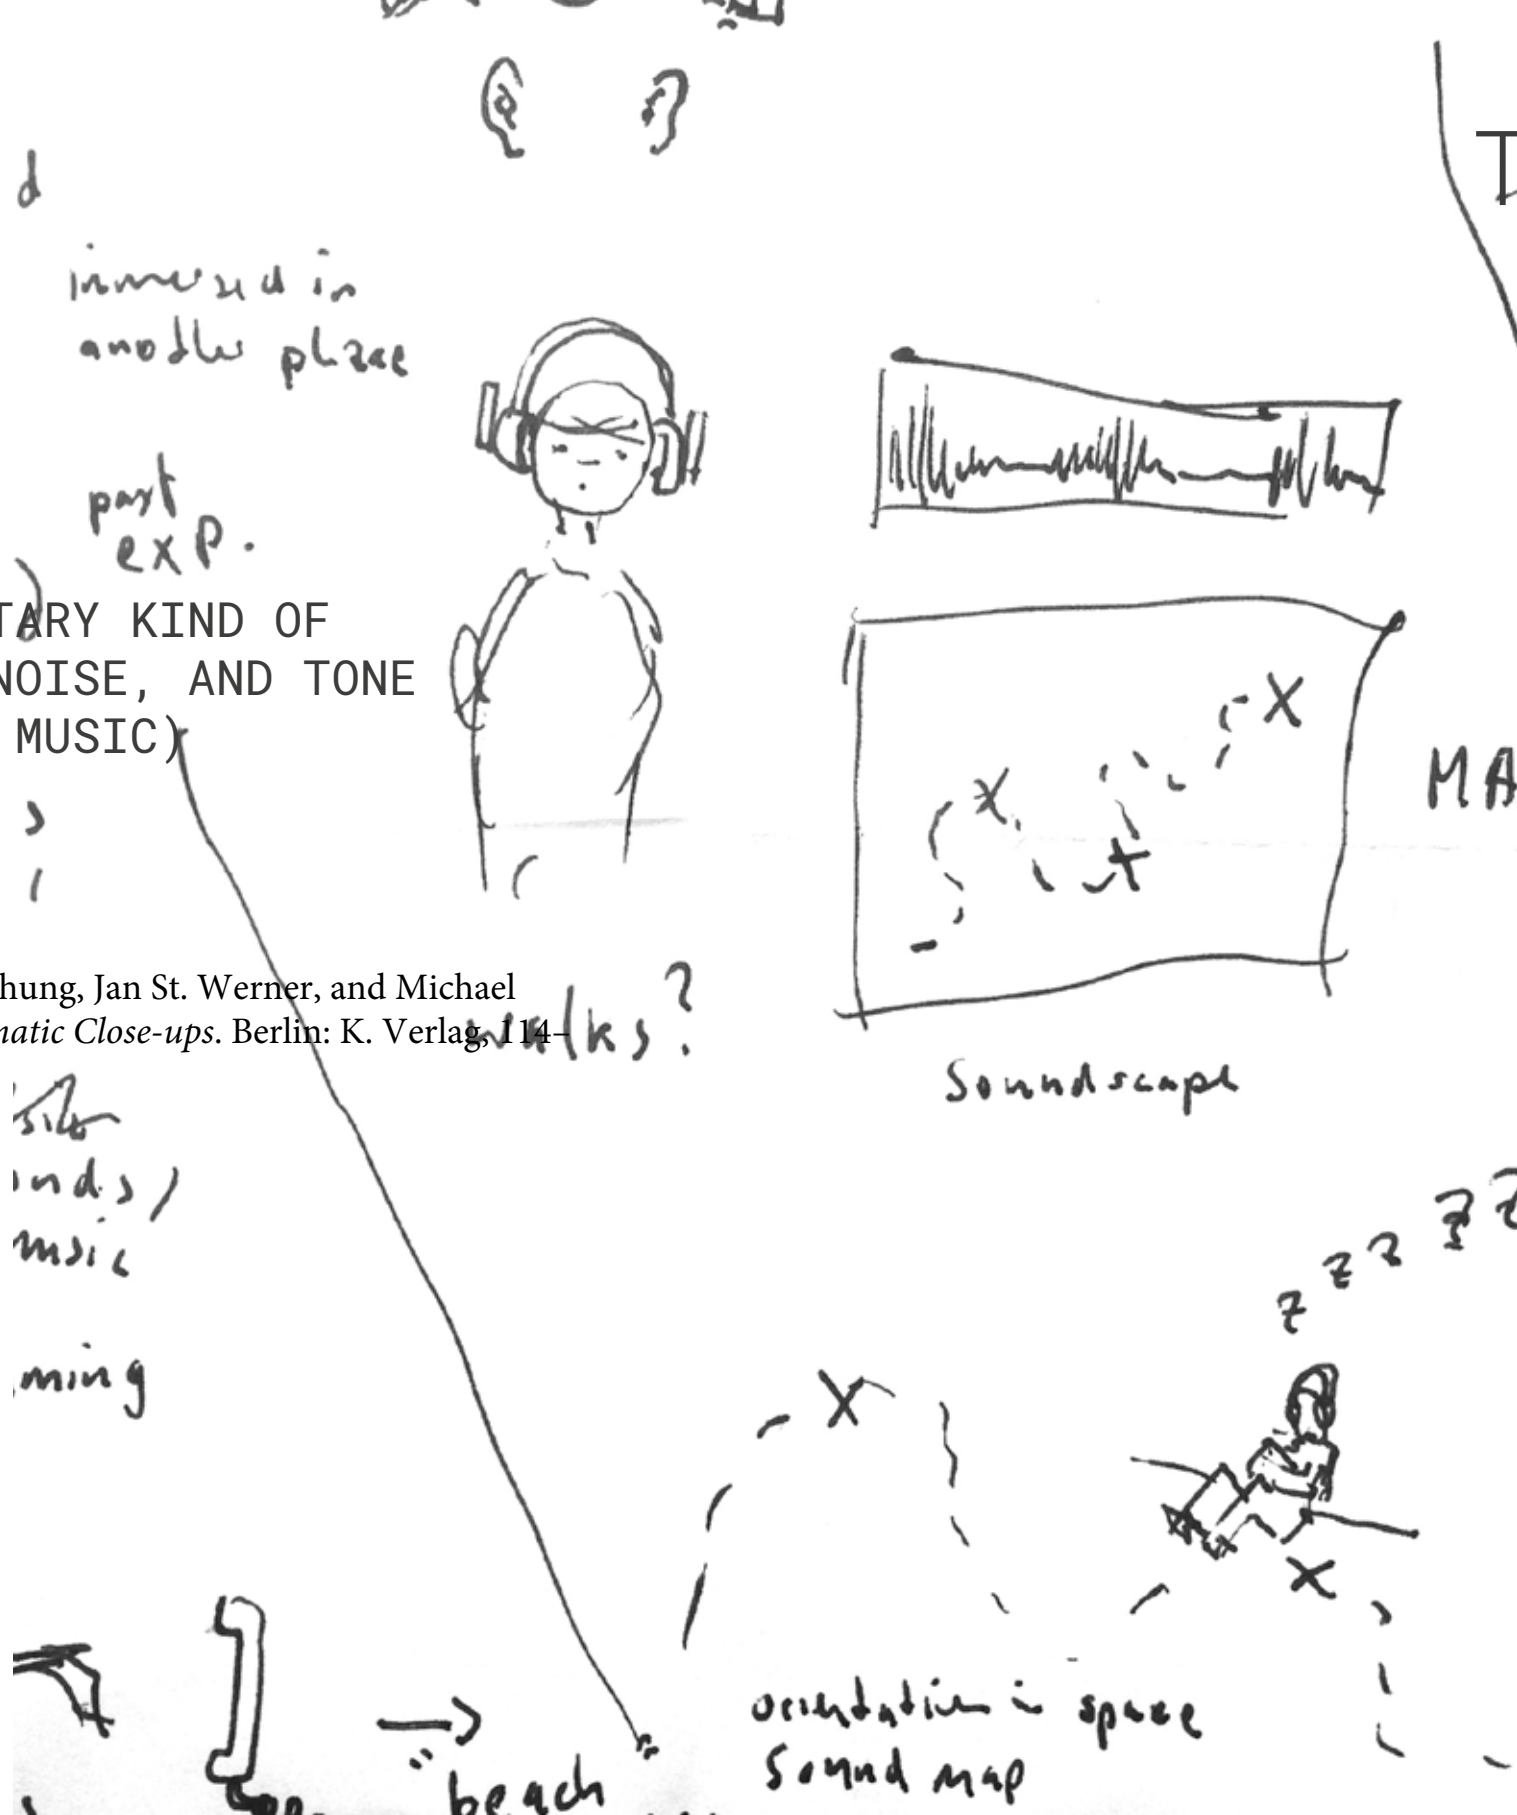 d
immersed in
another phzae
past
exp.
TARY KIND OF
NOISE, AND TONE
MUSIC)
MA
hung, Jan St. Werner, and Michael
matic Close-ups. Berlin: K. Verlag, 114–
walks?
Soundscape
unds,
music
z z z z z
ming
orientation in space
sound map
beach